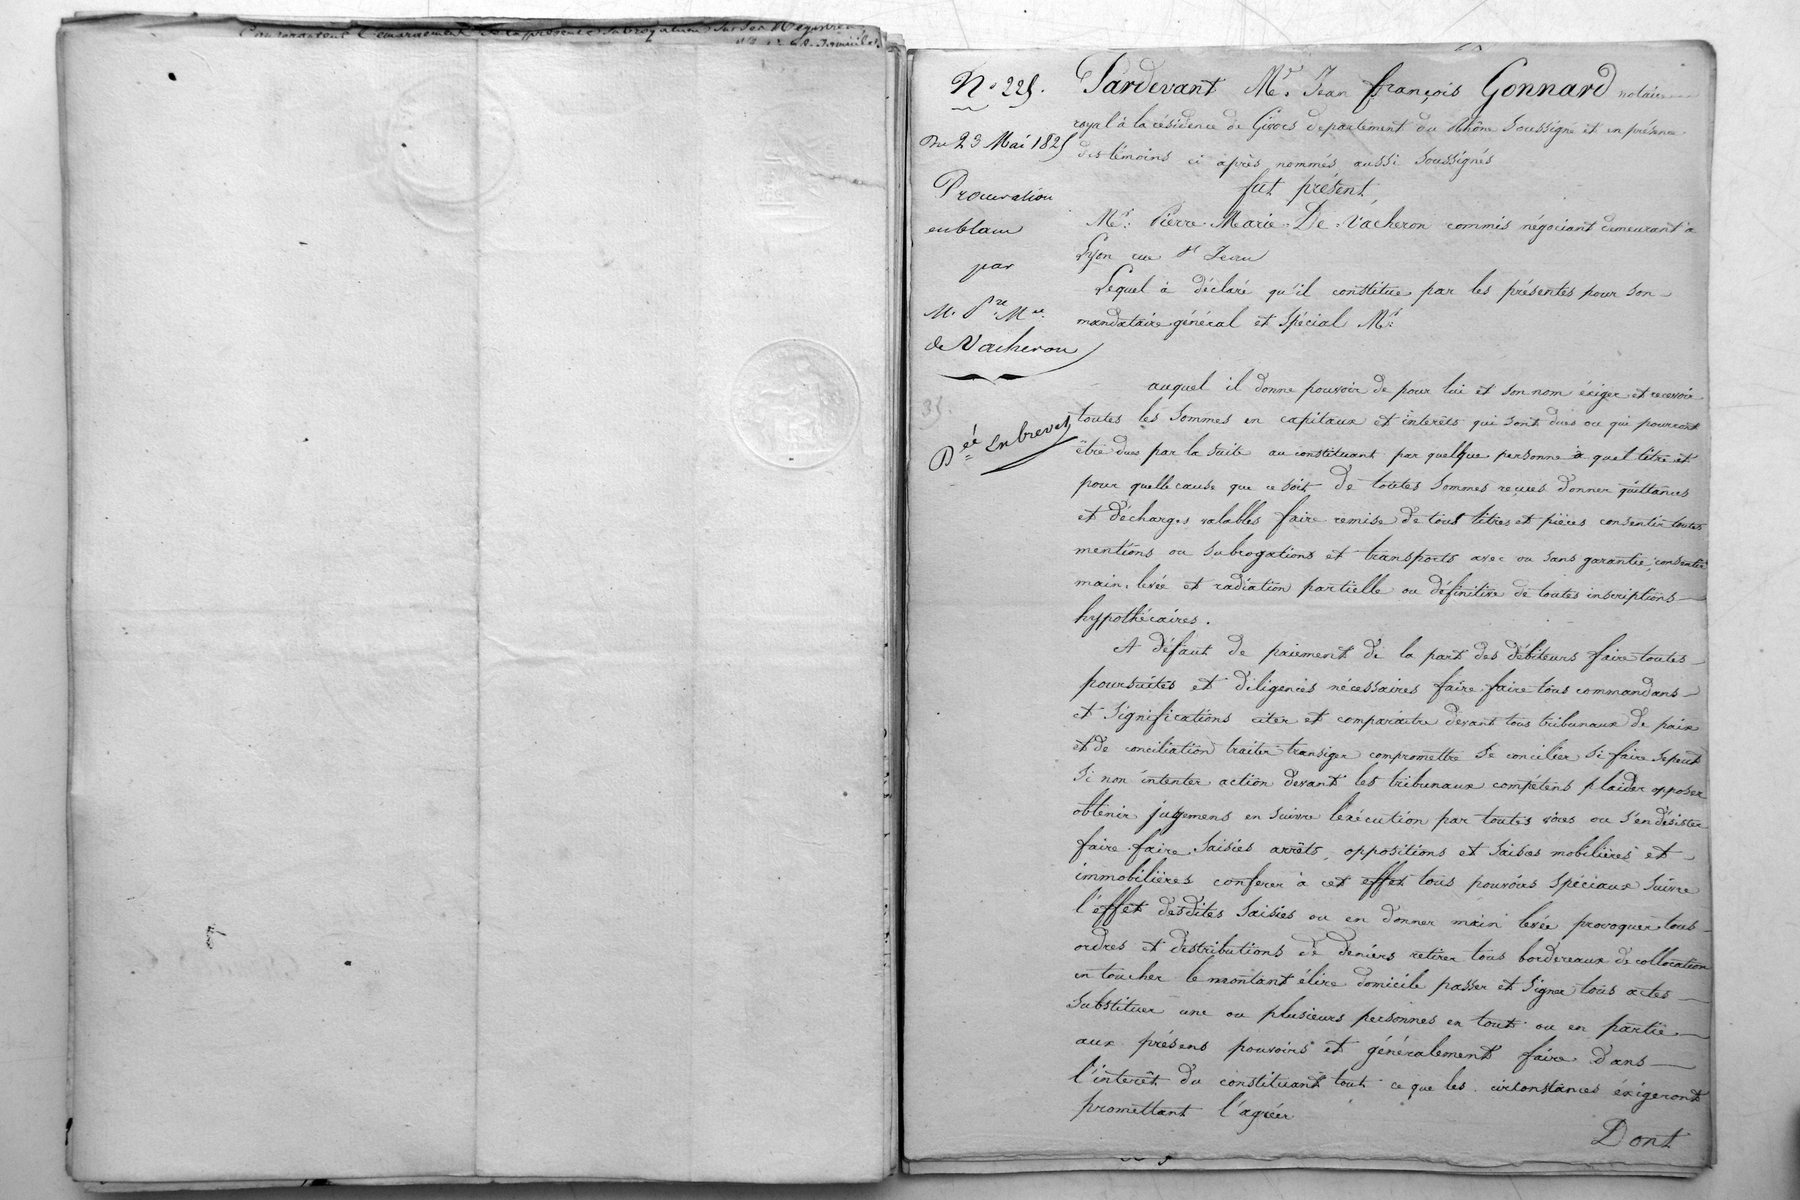 N.o 225.
Du 23 Mai 1825
Procuration
en blanc
par
M. Pre. Mie.
de Vacheron
Dée en brevet
Pardevant Me. Jean françois Gonnard notaire
royal à la résidence de Givors departement du Rhône Soussigné et en présence
des témoins ci après nommés aussi soussignés
fut présent
Mr. Pierre Marie De Vacheron commis négociant demeurant à
Lyon rue st Jean
Lequel à déclaré qu'il constitue par les présentes pour son
mandataire général et spécial Mr.
auquel il donne pouvoir de pour lui et son nom éxiger et recevoir
toutes les sommes en capitaux et interêts qui sont dues ou qui pourront
être dues par la suite au constituant par quelque personne à quel titre et
pour quelle cause que ce soit De toutes sommes reçues donner quittances
et décharges valables faire remise de tous titres et pièces consentir toutes
mentions ou subrogations et transports avec ou sans garantie, consentir
main levée et radiation partielle ou définitive de toutes inscriptions
hypothécaires.
A défaut de paiement de la part des débiteurs faire toutes
poursuites et diligences nécessaires faire faire tous commandans
et significations citer et comparaitre devant tous tribunaux de paix
et de conciliation traiter transiger compromettre se concilier si faire se peut
Si non intenter action devant les tribunaux compétens plaider opposer
obtenir jugemens en suivre l'éxécution par toutes voies ou s'en désister
faire faire saisies arrêts, oppositions et saisies mobilières et
immobilières conferer à cet effet tous pouvoirs spéciaux suivre
l'effet desdites saisies ou en donner main levée provoquer tous
ordres et distributions de deniers retirer tous bordereaux de collocation
en toucher le montant élire domicile passer et signer tous actes
substituer une ou plusieurs personnes en tout ou en partie
aux présens pouvoirs et généralement faire dans
l'interêt du constituant tout ce que les circonstances éxigeront
promettant l'agréer
Dont